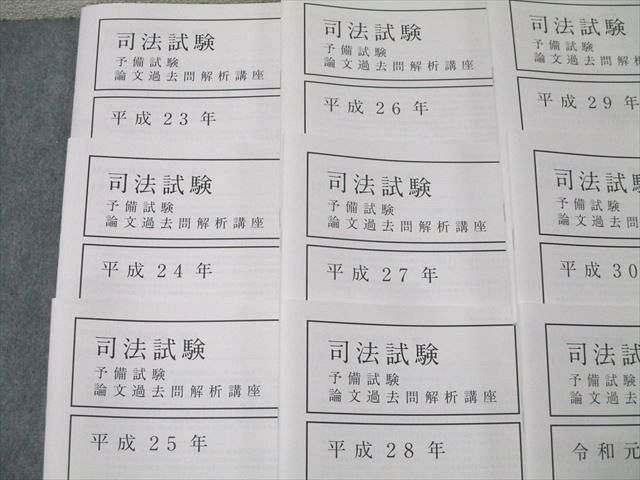 司法試験
予備試験
論文過去問解析講座
平成 23 年
司法試験
予備試験
論文過去問解析講座
平成 24 年
司法試験
予備試験
論文過去問解析講座
平成 25 年
司法試験
予備試験
論文過去問解析講座
平成 26 年
司法試験
予備試験
論文過去問解析講座
平成 27 年
司法試験
予備試験
論文過去問解析講座
平成 28 年
司法試験
予備試験
論文過去問解析
平成 29 年
司法試
予備試験
論文過去問
平成 30
司法試
予備試験
論文過去問
令和元